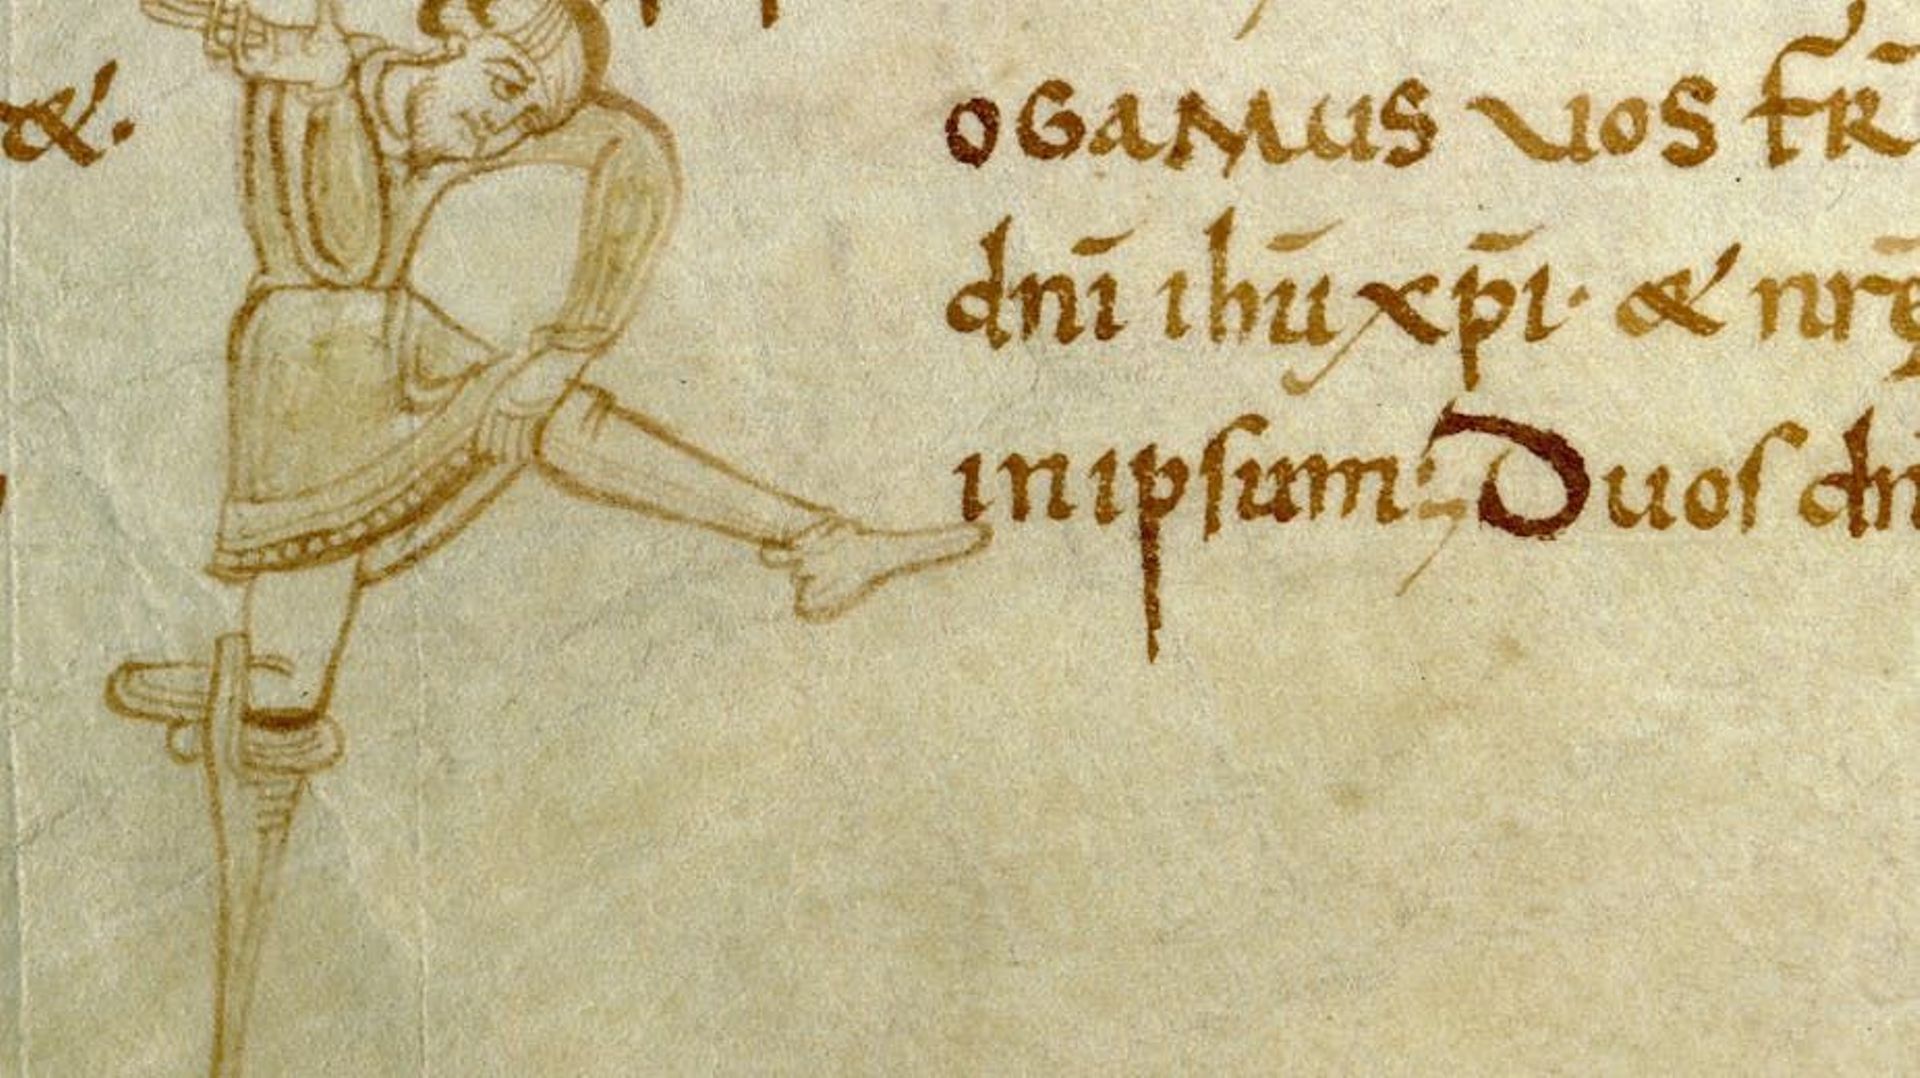 &.
ogamus vos fr̄
dn̄i ihū xp̄i· & nr̄ę
in ipsum; Duos dn